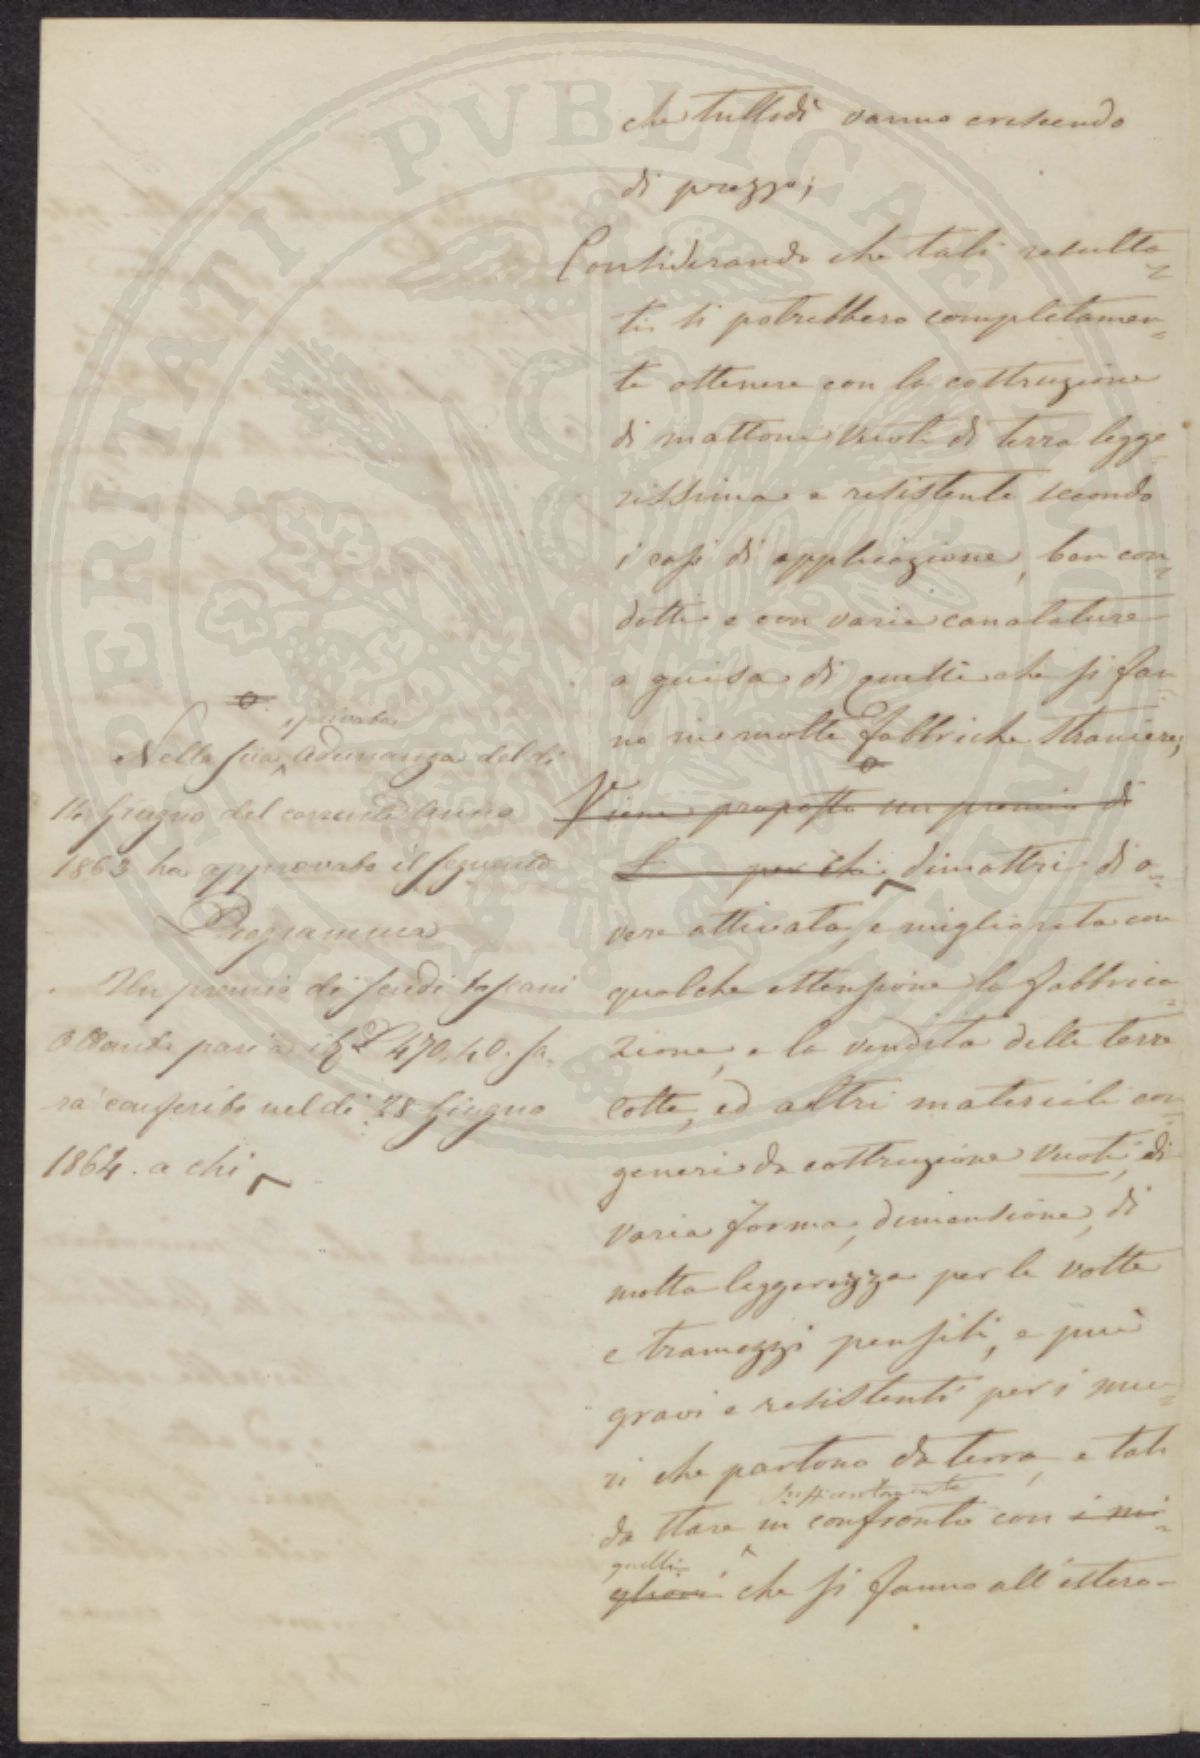 che tuttodì vanno crescendo
di prezzo;
Considerando che tali resulta=
ti si potrebbero completamen=
te ottenere con la costruzione
di mattoni vuoti di terra legge=
rissima e resistente secondo
i casi di applicazione, ben con=
dotti e con varie canalature
a guisa di quelli che si fan=
no in molte fabbriche straniere;
Viene proposto un premio di
L per chi dimostri di a=
vere attivata, e migliorata con
qualche estensione la fabbrica=
zione, e la vendita delle terre
cotte, ed altri materiali con=
generi da costruzione vuoti, di
varia forma, dimensione, di
molta leggerezza per le volte
e tramezzi pensili, e più
gravi e resistenti per i mu=
ri che partono da terra, e tali
sufficientemente
da stare in confronto con i mi=
quelli
gliori che si fanno all'estero-
privata
Nella sua adunanza del dì
14 Giugno del corrente anno
1863 ha approvato il seguente
Programma
Un premio di scudi toscani
Ottanta pari a it L 470,40. sa=
rà conferito nel dì 28 Giugno
1864. a chi
PERITATI PVBLICAE